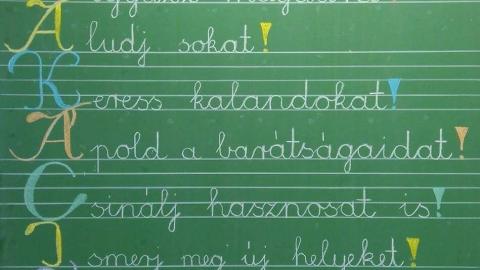 Aludj sokat!
Keress kalandokat!
Ápold a barátságaidat!
Csinálj hasznosat is!
Ismerj meg új helyeket!